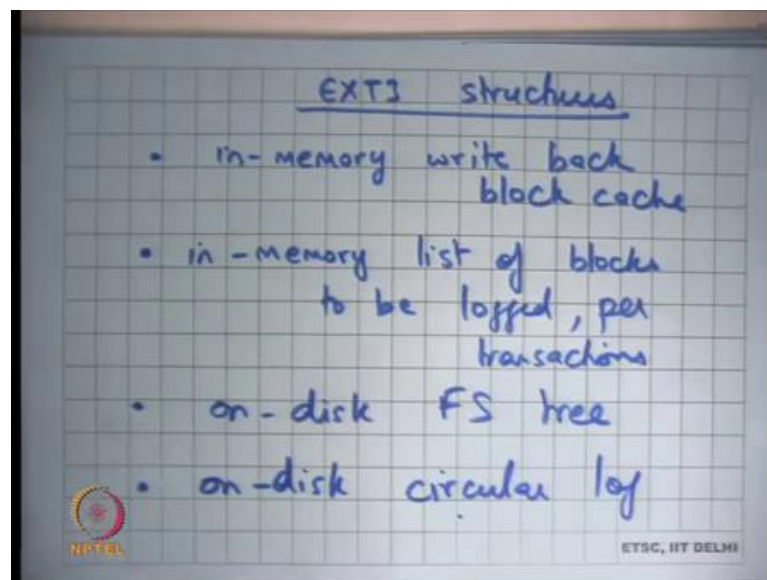 EXT3 structures
• in-memory write back
block cache
• in-memory list of blocks
to be logged, per
transactions
• on-disk FS tree
• on-disk circular log
NPTEL
ETSC, IIT DELHI